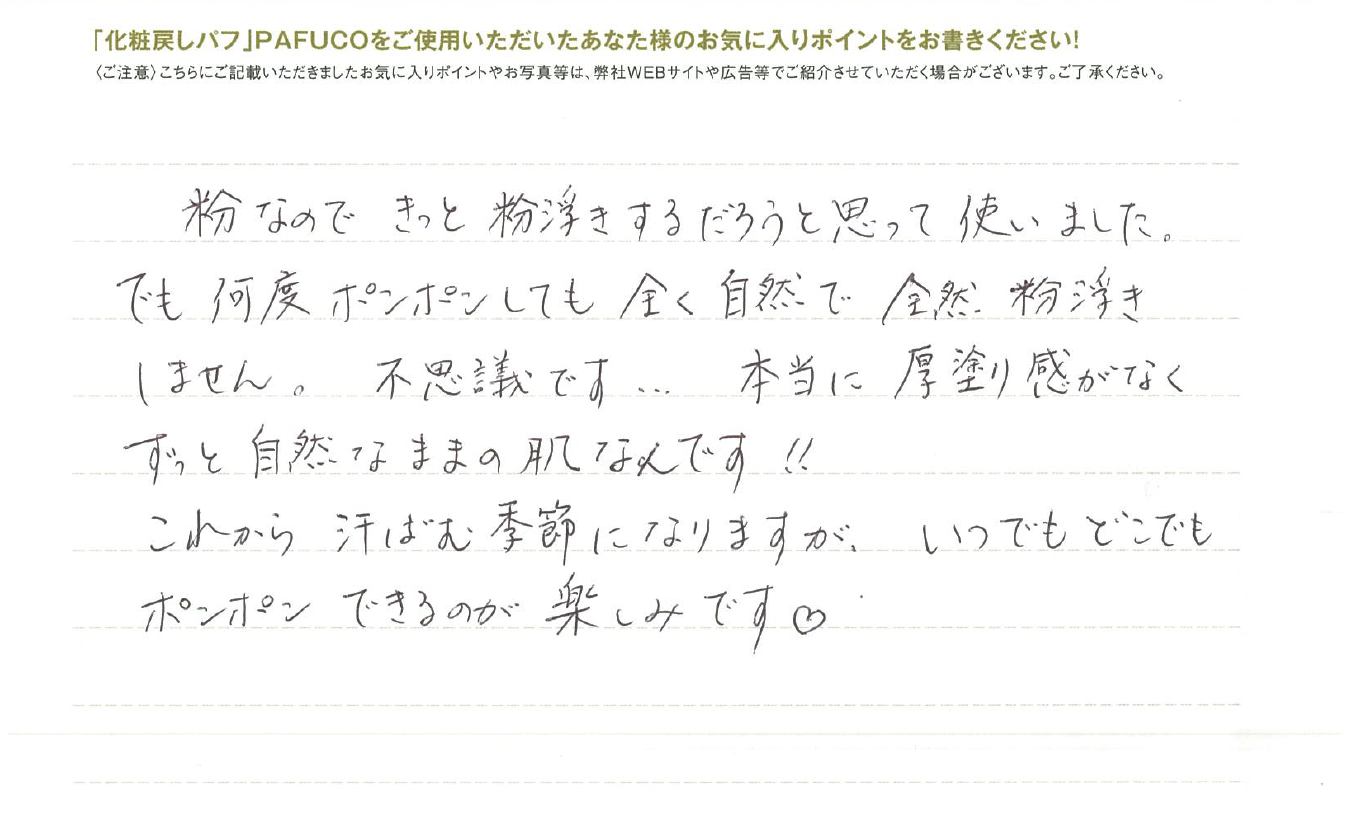 「化粧戻しパフ」PAFUCOをご使用いただいたあなた様のお気に入りポイントをお書きください!
〈ご注意〉こちらにご記載いただきましたお気に入りポイントやお写真等は、弊社WEBサイトや広告等でご紹介させていただく場合がございます。ご了承ください。
粉なので きっと 粉浮きするだろうと思って 使いました。
でも 何度 ポンポンしても 全く 自然で 全然 粉浮き
しません。 不思議です… 本当に 厚塗り感がなく
ずっと 自然なままの 肌なんです!!
これから 汗ばむ 季節になりますが、 いつでもどこでも
ポンポン できるのが 楽しみです♡